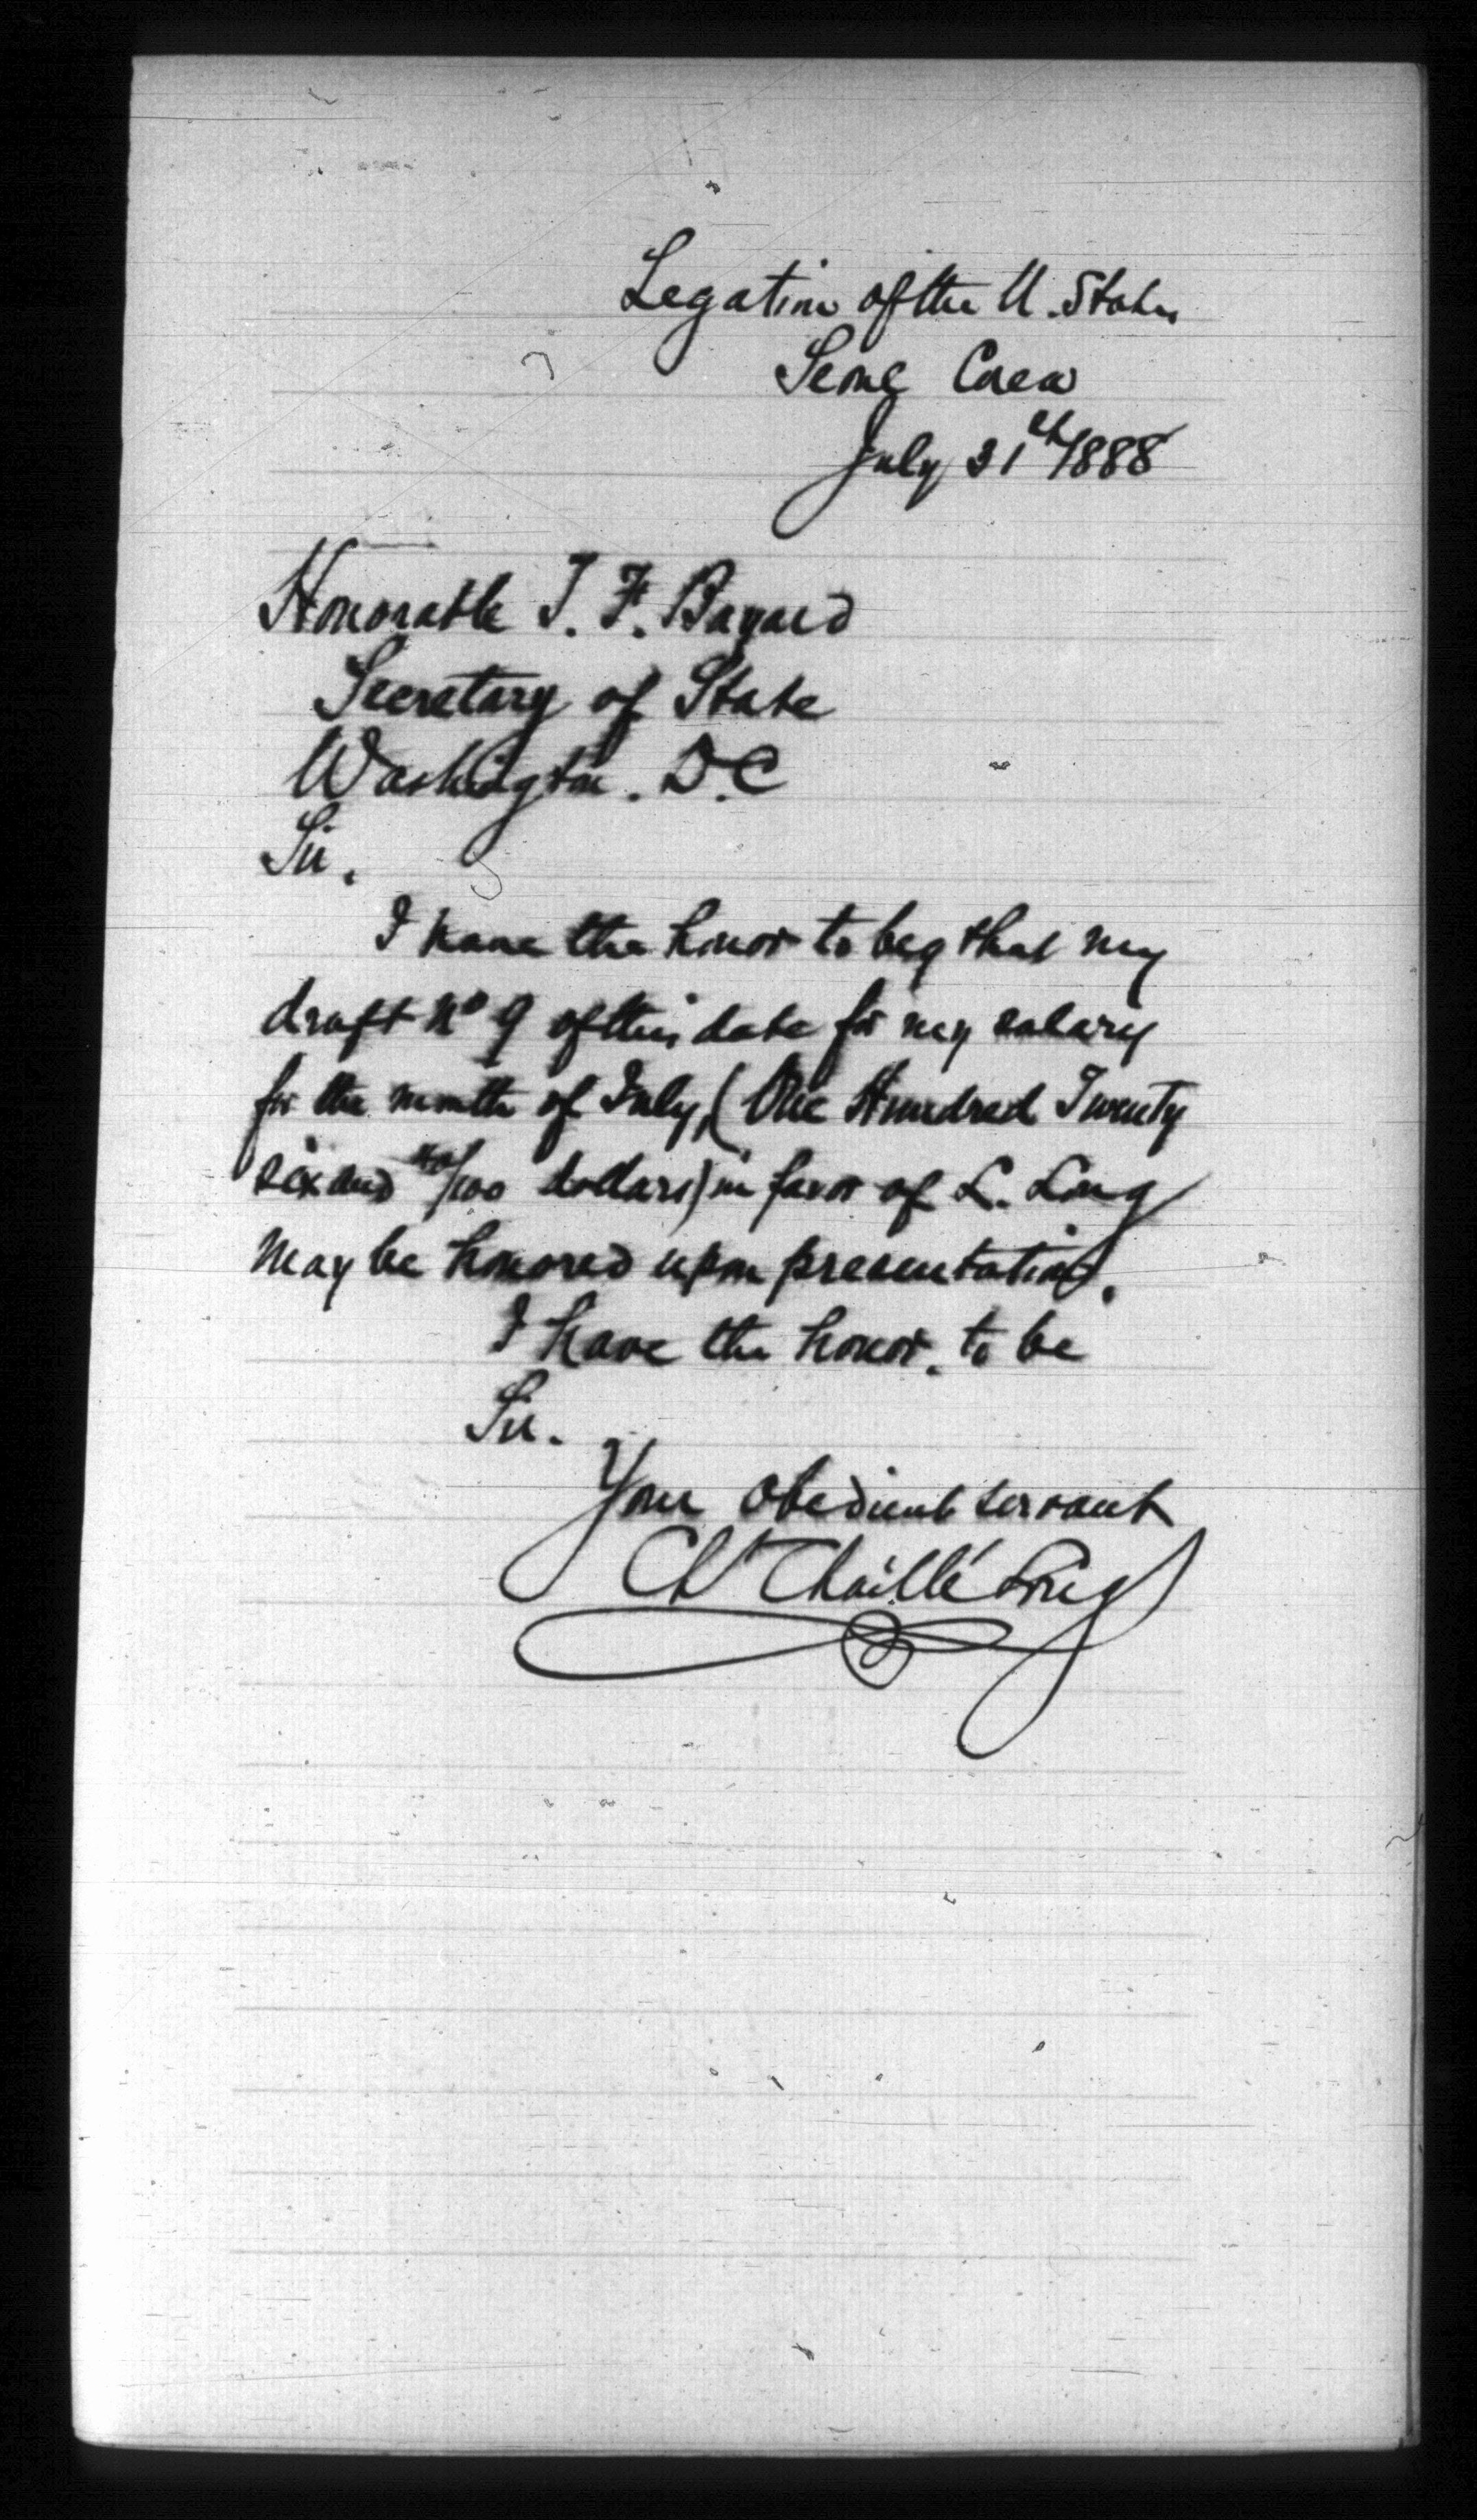 Legation of the U. States
Seoul Corea
July 31st 1888
Honorable T. F. Bayard
Secretary of State
Washington. D.C
Sir.
I have the honor to beg that my
draft No 9 of this date for my salary
for the month of July, (One Hundred Twenty
six and /100 dollars) in favor of L. Long
may be honored upon presentation.
I have the honor. to be
Sir.
Your obedient servant
Ch Chaillé Long